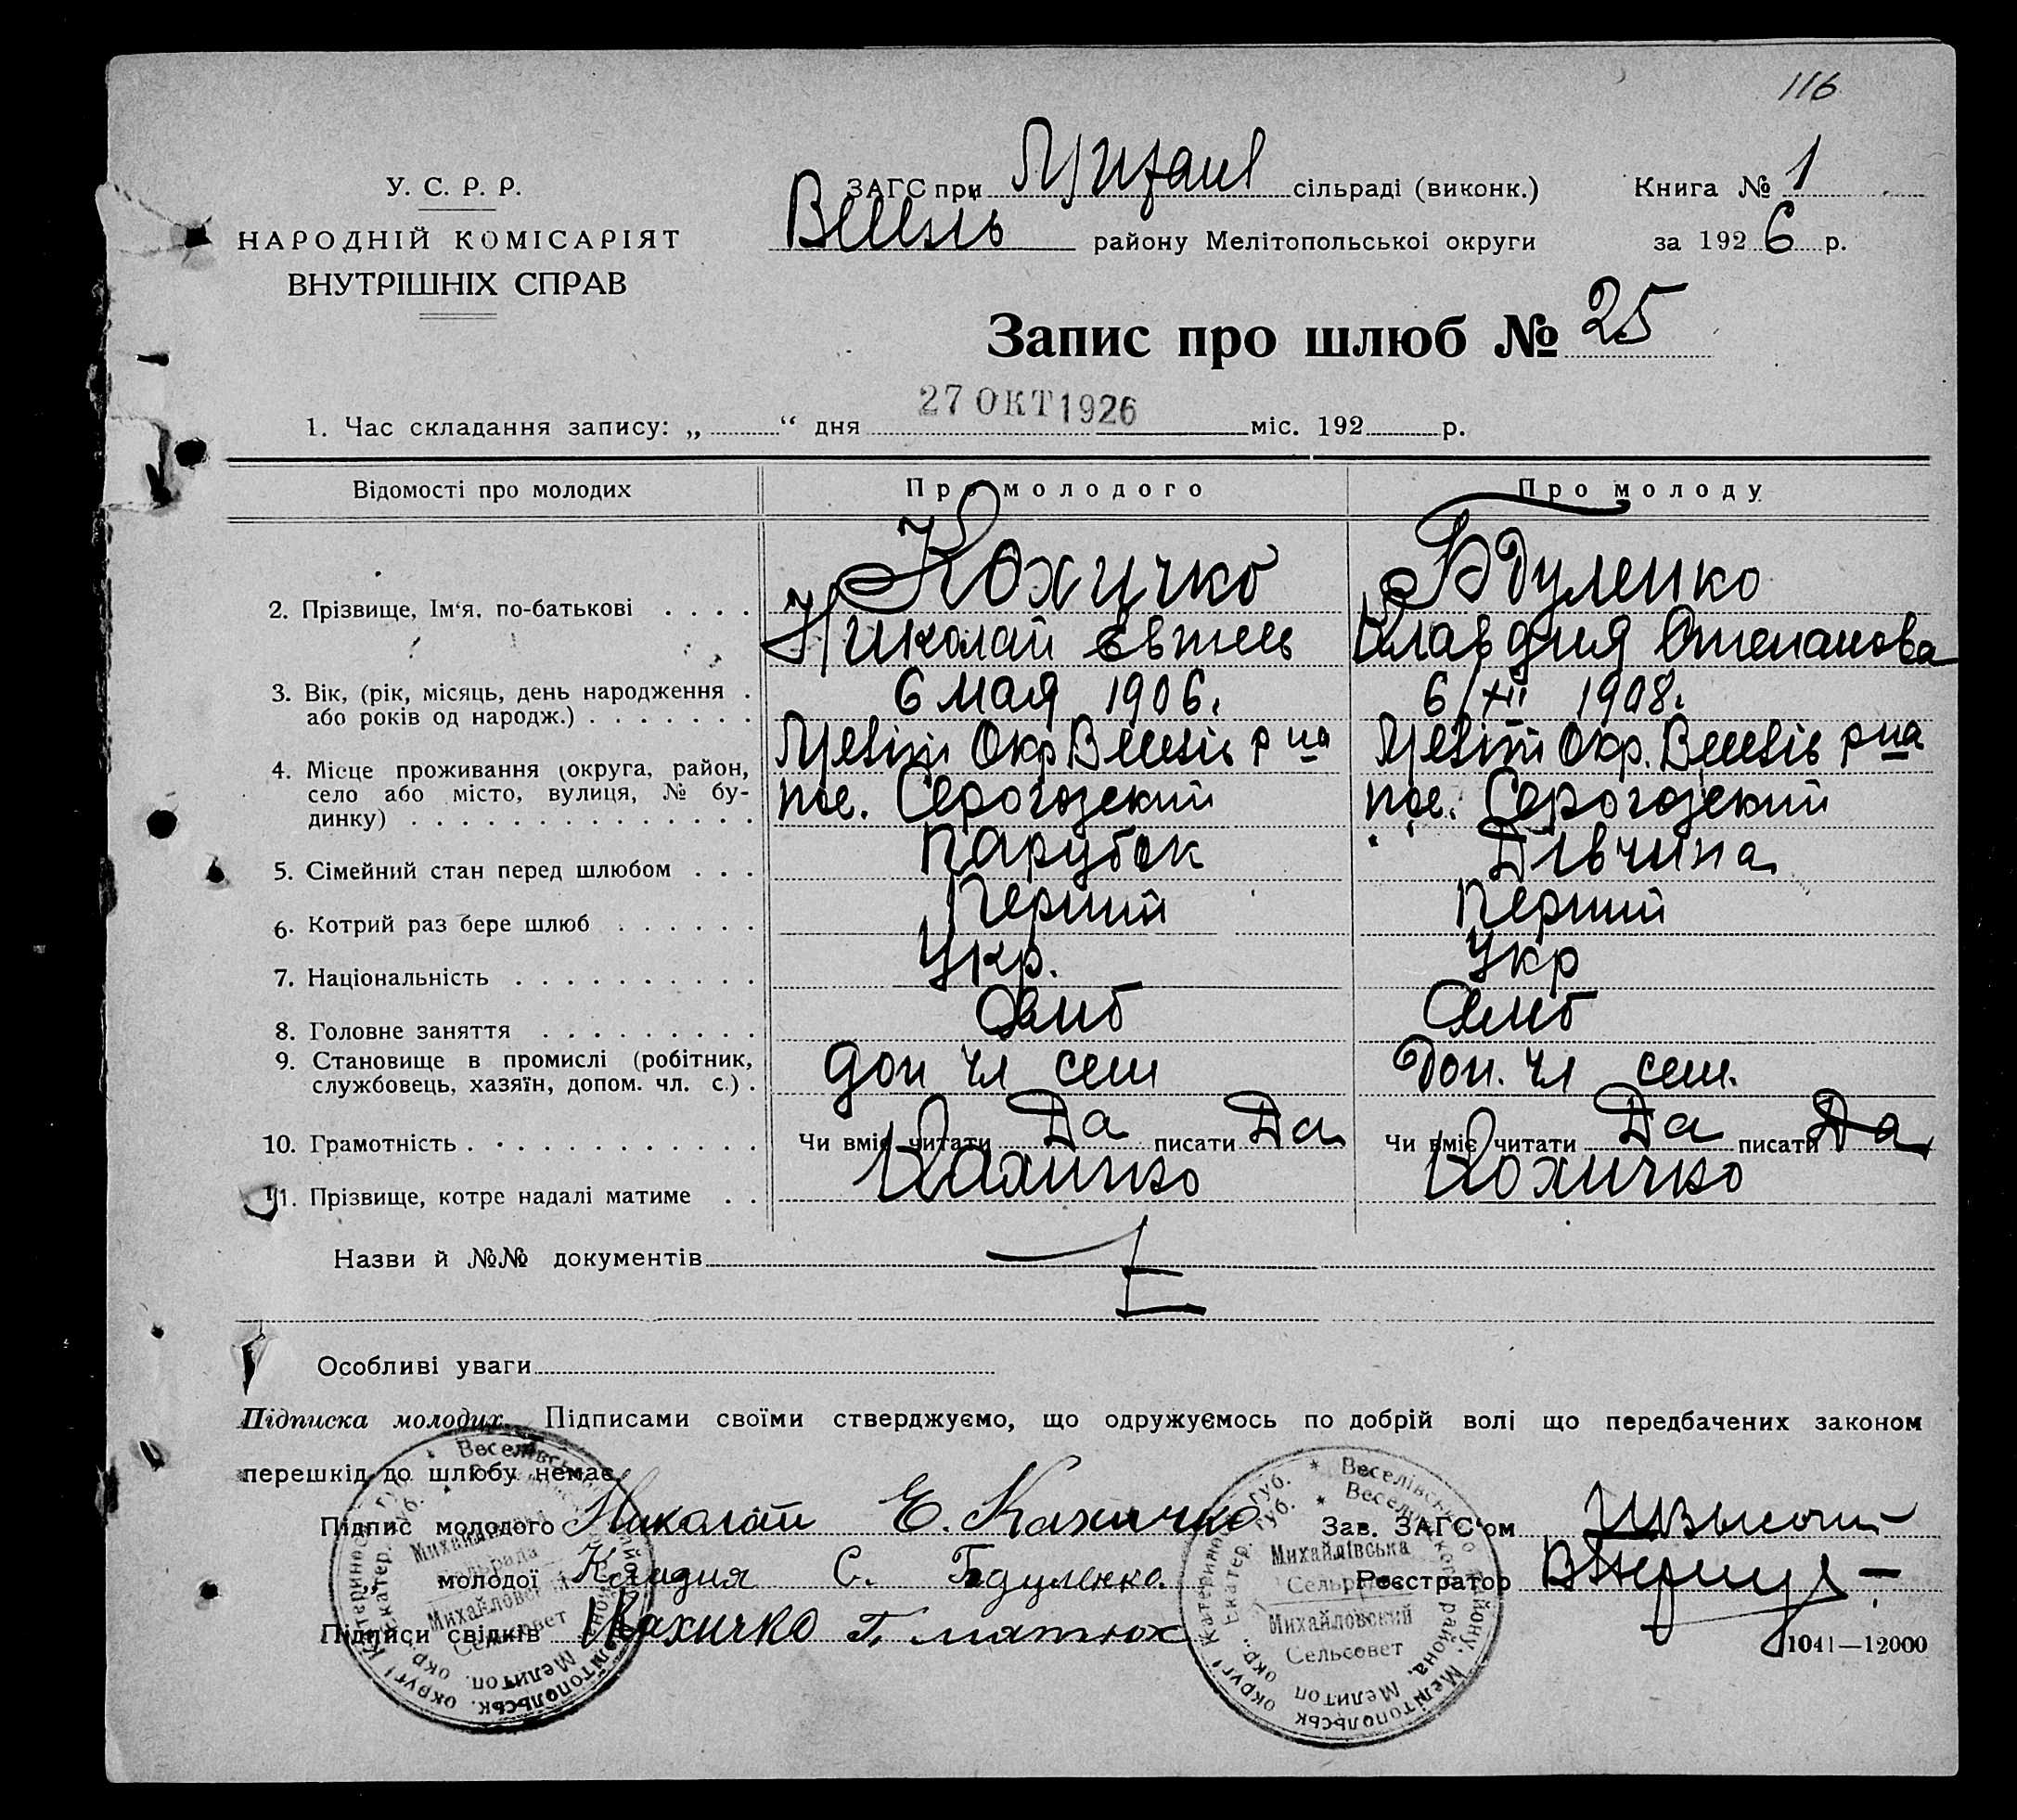 116
У. С. Р. Р.
НАРОДНІЙ КОМІСАРІЯТ
ВНУТРІШНІХ СПРАВ
ЗАГС при Михайл сільраді (виконк.) Книга № 1
Весель району Мелітопольськоі округи за 1926 р.
Запис про шлюб № 25
1. Час складання запису: „ “ дня 27 ОКТ 1926 міс. 192 р.
Відомості про молодих Про молодого Про молоду
2. Прізвище, Ім‘я, по-батькові . . . . Кохичко Бдуленко
Николай Клавдия Степанова
3. Вік, (рік, місяць, день народження . 6 мая 1906. 6/XII 1908.
або років од народж.) . . . . . . .
4. Місце проживання (округа, район, Меліт Окр Веселів р на Меліт Окр. Веселів р на
село або місто, вулиця, № бу- пос. Серогозский пос. Серогозский
динку) . . . . . . . . . . . . . .
5. Сімейний стан перед шлюбом . . . Парубок Дівчина
6. Котрий раз бере шлюб . . . . . . Перший Перший
7. Національність . . . . . . . . . . Укр. Укр
8. Головне заняття . . . . . . . . .
9. Становище в промислі (робітник, доп чл сем Доп. чл сем.
службовець, хазяїн, допом. чл. с.) .
10. Грамотність . . . . . . . . . . . . Чи вміє читати Да писати Да Чи вміє читати Да писати Да
11. Прізвище, котре надалі матиме . . Кохичко Кохичко
Назви й №№ документів
Особливі уваги
Підписка молодих. Підписами своїми стверджуємо, що одружуємось по добрій волі що передбачених законом
перешкід до шлюбу немає.
Підпис молодого Николай Е. Кахичко Зав. ЗАГС‘ом
„ молодої Клавдия С. Бдуленко Реєстратор
Підписи свідків Кахичко Г. Матюх
1041—12000
Веселівського району, Мелітопольськ. округи Катериносл. губ.
Веселовского района, Мелитоп. окр., Екатер. губ.
Михайлівська
Сельрада
Михайловский
Сельсовет